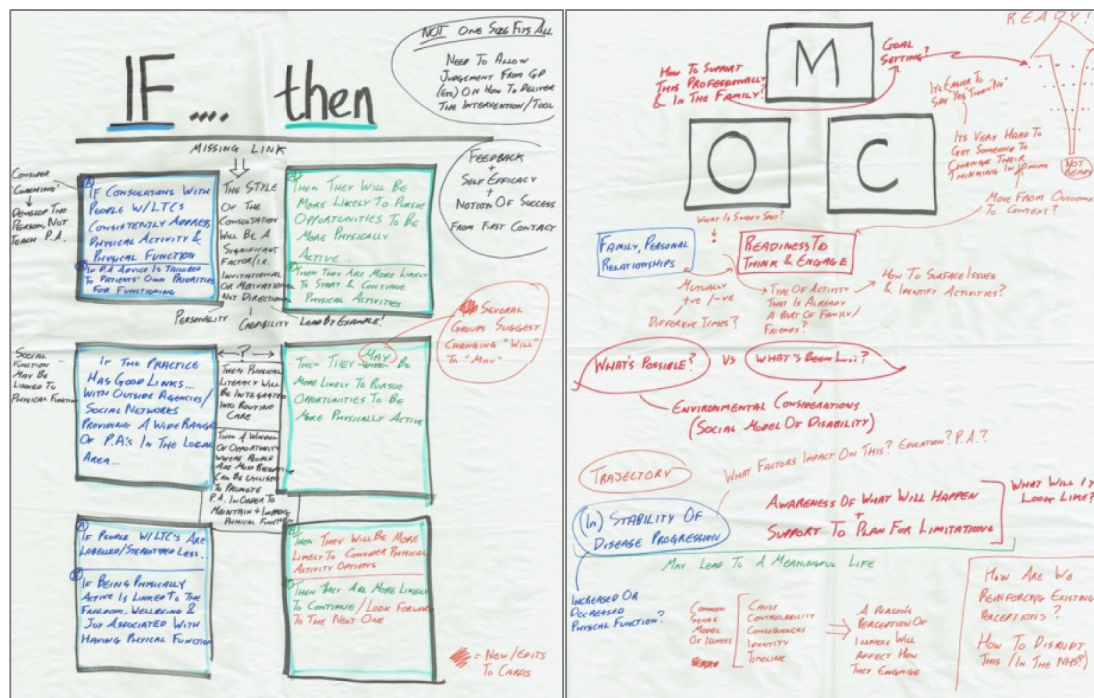 NOT ONE SIZE FITS ALL
NEED TO ALLOW
JUDGEMENT FROM GP
(ETC) ON HOW TO DELIVER
THE INTERVENTION/TOOL
IF.... then
MISSING LINK
CONSIDER
'COACHING'
DEVELOP THE
PERSON, NOT
TEACH P.A.
IF CONSULATIONS WITH
PEOPLE W/LTC'S
CONSISTENTLY ADDRESS
PHYSICAL ACTIVITY &
PHYSICAL FUNCTION
IF P.A ADVICE IS TAILORED
TO PATIENTS' OWN PRIORITIES
FOR FUNCTIONING
THE STYLE
OF THE
CONSULTATION
WILL BE A
SIGNIFICANT
FACTOR/I.E.
INVITATIONAL
OR MOTIVATIONAL
NOT DIRECTIONAL
PERSONALITY
CREDIBILITY
LEAD BY EXAMPLE!
THEN THEY WILL BE
MORE LIKELY TO PURSUE
OPPORTUNITIES TO BE
MORE PHYSICALLY
ACTIVE...
THEN THEY ARE MORE LIKELY
TO START & CONTINUE
PHYSICAL ACTIVITIES
FEEDBACK
+
SELF EFFICACY
+
NOTION OF SUCCESS
FROM FIRST CONTACT
SEVERAL
GROUPS SUGGEST
CHANGING "WILL"
TO "MAY"
SOCIAL
FUNCTION
MAY BE
LINKED TO
PHYSICAL FUNCTION
IF THE PRACTICE
HAS GOOD LINKS...
WITH OUTSIDE AGENCIES/
SOCIAL NETWORKS
PROVIDING A WIDE RANGE
OF P.A'S IN THE LOCAL
AREA...
?
THEN PHYSICAL
LITERACY WILL
BE INTEGRATED
INTO ROUTINE
CARE
THEN A WINDOW
OF OPPORTUNITY
WHERE PEOPLE
ARE MOST RECEPTIVE
CAN BE UTILISED
TO PROMOTE
P.A. IN ORDER TO
MAINTAIN + IMPROVE
PHYSICAL FUNCTION
MAY
THEN THEY WILL BE
MORE LIKELY TO PURSUE
OPPORTUNITIES TO BE
MORE PHYSICALLY ACTIVE
IF PEOPLE W/LTC'S ARE
LABELLED/STEREOTYPED LESS...
IF BEING PHYSICALLY
ACTIVE IS LINKED TO THE
FREEDOM, WELLBEING &
JOY ASSOCIATED WITH
HAVING PHYICAL FUNCTION
THEN THEY WILL BE MORE
LIKELY TO CONSIDER PHYSICAL
ACTIVITY OPTIONS
THEN THEY ARE MORE LIKELY
TO CONTINUE/LOOK FORWARD
TO THE NEXT ONE
= NEW/EDITS
TO CARDS
READY!
M
GOAL
SETTING?
HOW TO SUPPORT
THIS PROFESSIONALLY
& IN THE FAMILY?
O C
IT'S EASIER TO
SAY "YES" THAN "NO"
ITS VERY HARD TO
GET SOMEONE TO
CHANGE THEIR
THINKING IN
NOT
READY
MOVE FROM OUTCOME
TO CONTEXT?
WHAT IS SWEET SPOT?
FAMILY, PERSONAL
RELATIONSHIPS
READINESS TO
THINK & ENGAGE
MUTUALLY
+VE/-VE
DIFFERENT TIMES?
TYPE OF ACTIVITY
THAT IS ALREADY
A PART OF FAMILY/
FRIENDS?
HOW TO SURFACE ISSUES
& IDENTIFY ACTIVITIES?
WHAT'S POSSIBLE? VS WHAT'S BEEN LOST?
ENVIRONMENTAL CONSIDERATIONS
(SOCIAL MODEL OF DISABILITY)
TRAJECTORY
WHAT FACTORS IMPACT ON THIS? EDUCATION? P.A.?
(IN) STABILITY OF
DISEASE PROGRESSION
AWARENESS OF WHAT WILL HAPPEN
+
SUPPORT TO PLAN FOR LIMITATIONS
WHAT WILL IT
LOOK LIKE?
MAY LEAD TO A MEANINGFUL LIFE
INCREASED OR
DECREASED
PHYSICAL FUNCTION?
COMMON
SENSE
MODEL
OF ILLNESS
CAUSE
CONTROLABILITY
CONSEQUENCES
IDENTITY
TIMELINE
A PERSON'S
PERCEPTION OF
ILLNESS WILL
AFFECT HOW
THEY ENGAGE
HOW ARE WE
REINFORCING EXISTING
PERCEPTIONS?
HOW TO DISRUPT
THIS (IN THE NHS?)